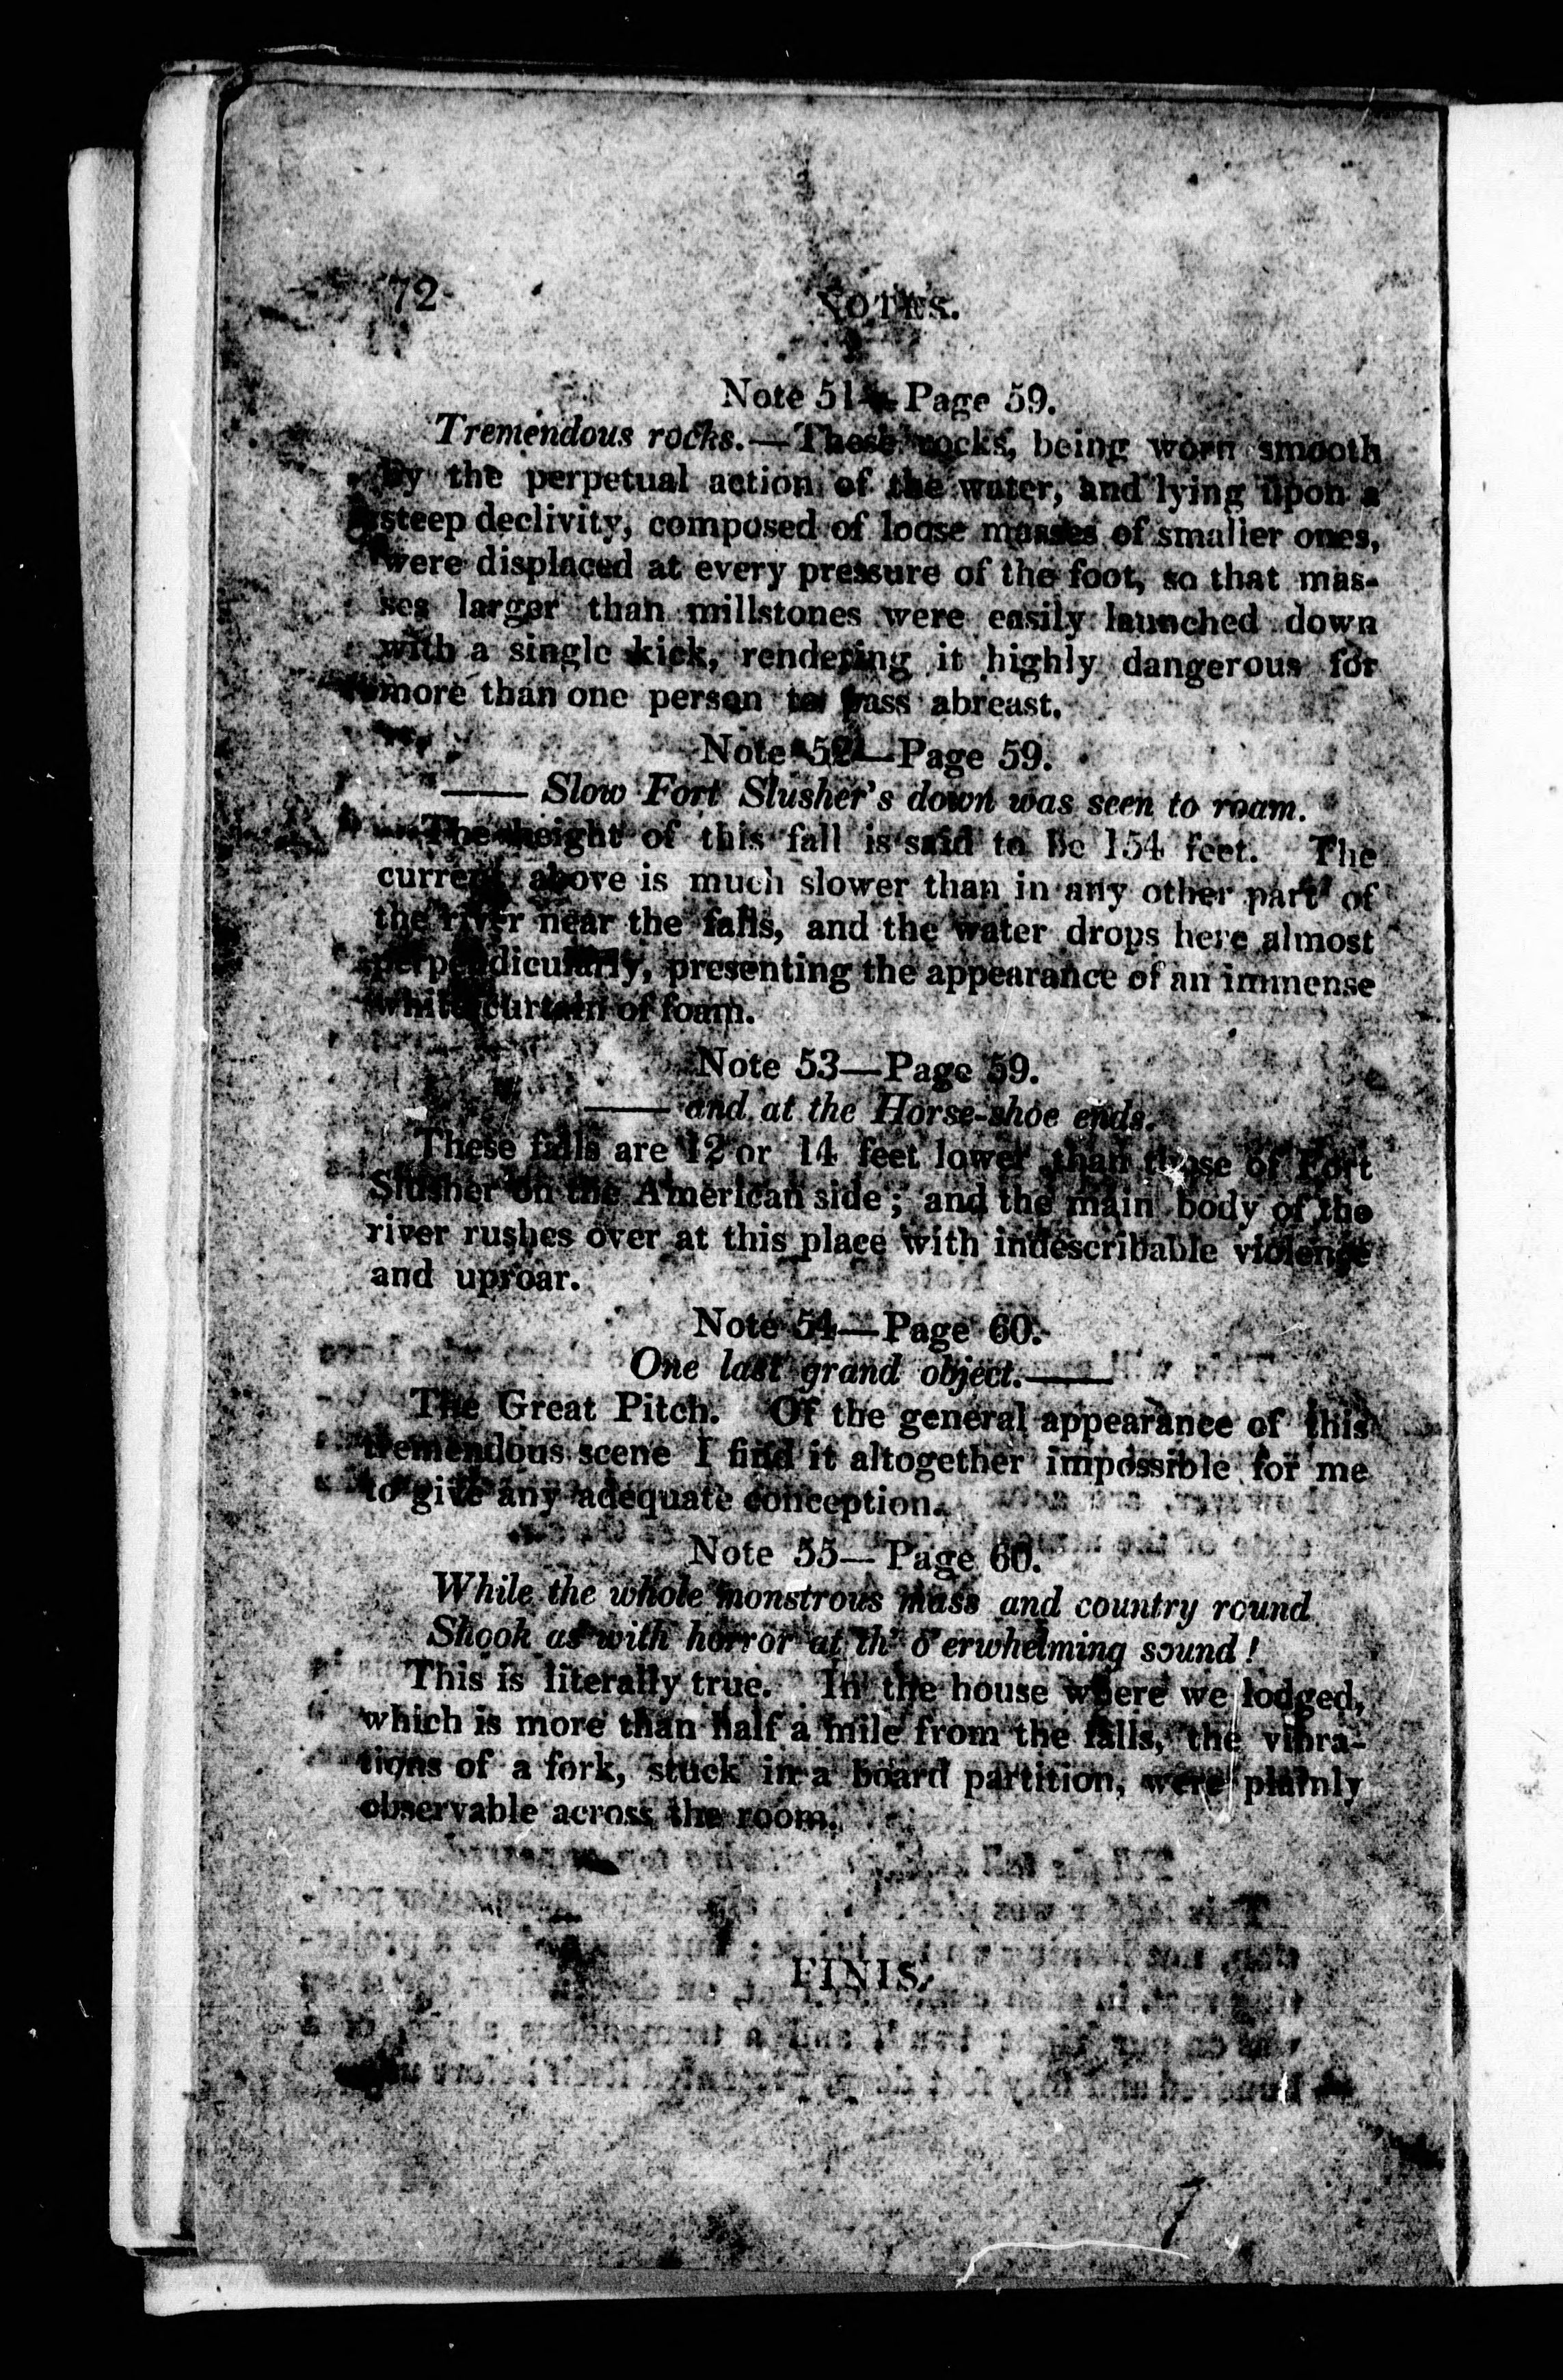 72
NOTES.
Note 51—Page 59.
Tremendous rocks.—These rocks, being worn smooth
by the perpetual action of the water, and lying upon a
steep declivity, composed of loose masses of smaller ones,
were displaced at every pressure of the foot, so that mas-
ses larger than millstones were easily launched down
with a single kick, rendering it highly dangerous for
more than one person to pass abreast.
Note 52—Page 59.
—— Slow Fort Slusher's down was seen to roam.
The height of this fall is said to be 154 feet. The
current above is much slower than in any other part of
the river near the falls, and the water drops here almost
perpendicularly, presenting the appearance of an immense
white curtain of foam.
Note 53—Page 59.
—— and at the Horse-shoe ends.
These falls are 12 or 14 feet lower than those of Fort
Slusher on the American side; and the main body of the
river rushes over at this place with indescribable violence
and uproar.
Note 54—Page 60.
One last grand object.——
The Great Pitch. Of the general appearance of this
tremendous scene I find it altogether impossible for me
to give any adequate conception.
Note 55—Page 60.
While the whole monstrous mass and country round
Shook as with horror at th' o'erwhelming sound!
This is literally true. In the house where we lodged,
which is more than half a mile from the falls, the vibra-
tions of a fork, stuck in a board partition, were plainly
observable across the room.
FINIS.